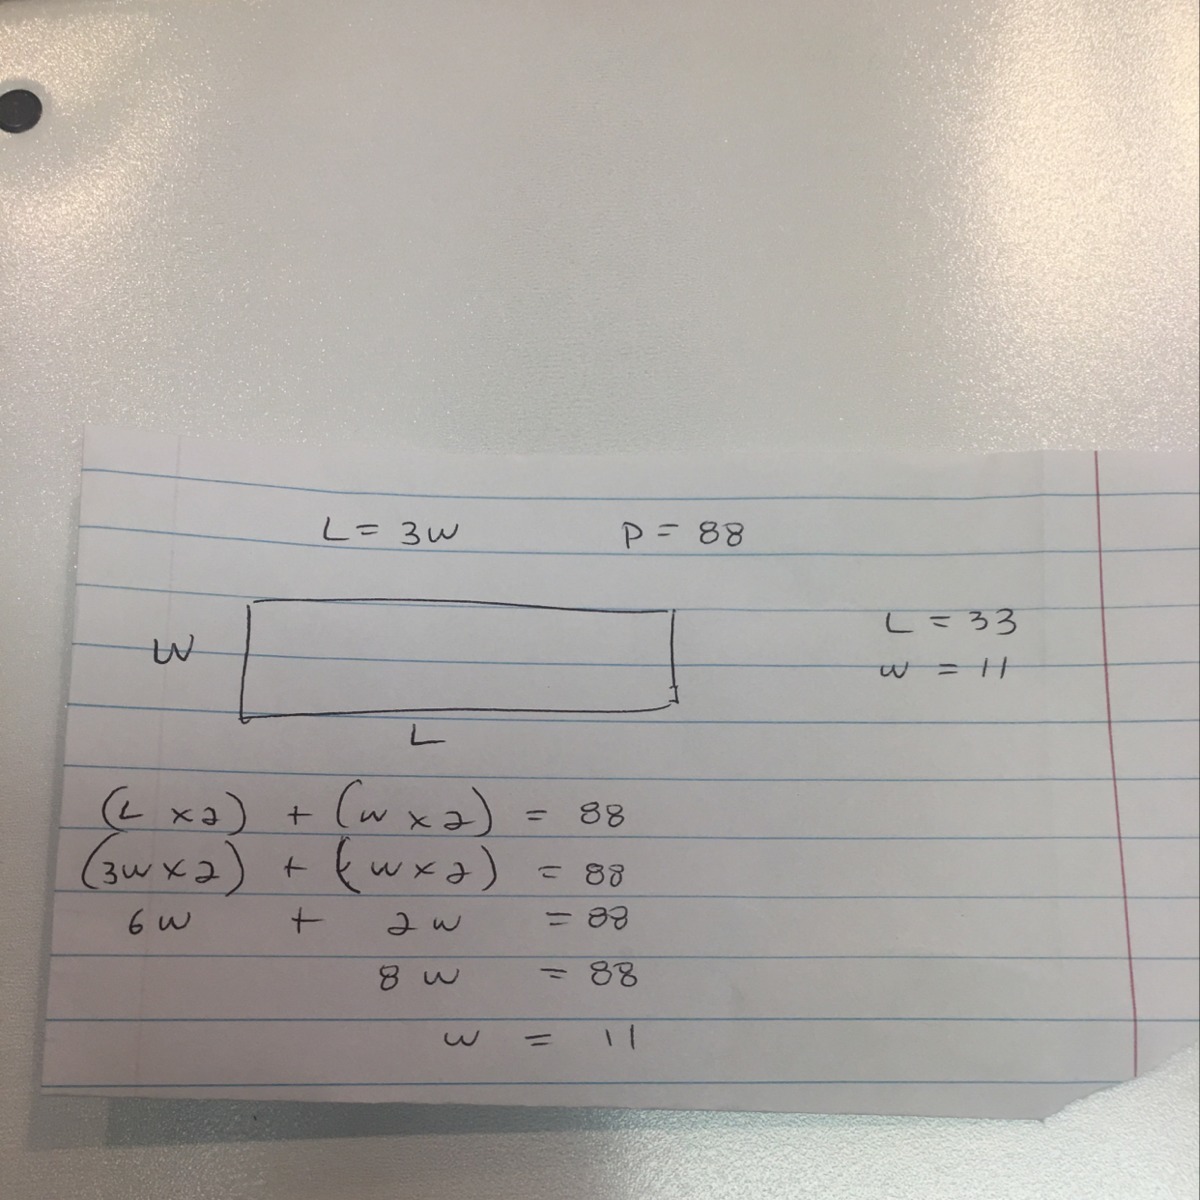 L = 3w P = 88
W
L = 33
w = 11
L
(L x2) + (w x 2) = 88
(3w x 2) + (w x 2) = 88
6w + 2w = 88
8 w = 88
w = 11